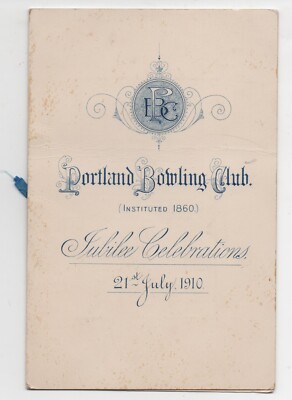 PBC
Portland Bowling Club.
(INSTITUTED 1860.)
Jubilee Celebrations.
21st July. 1910